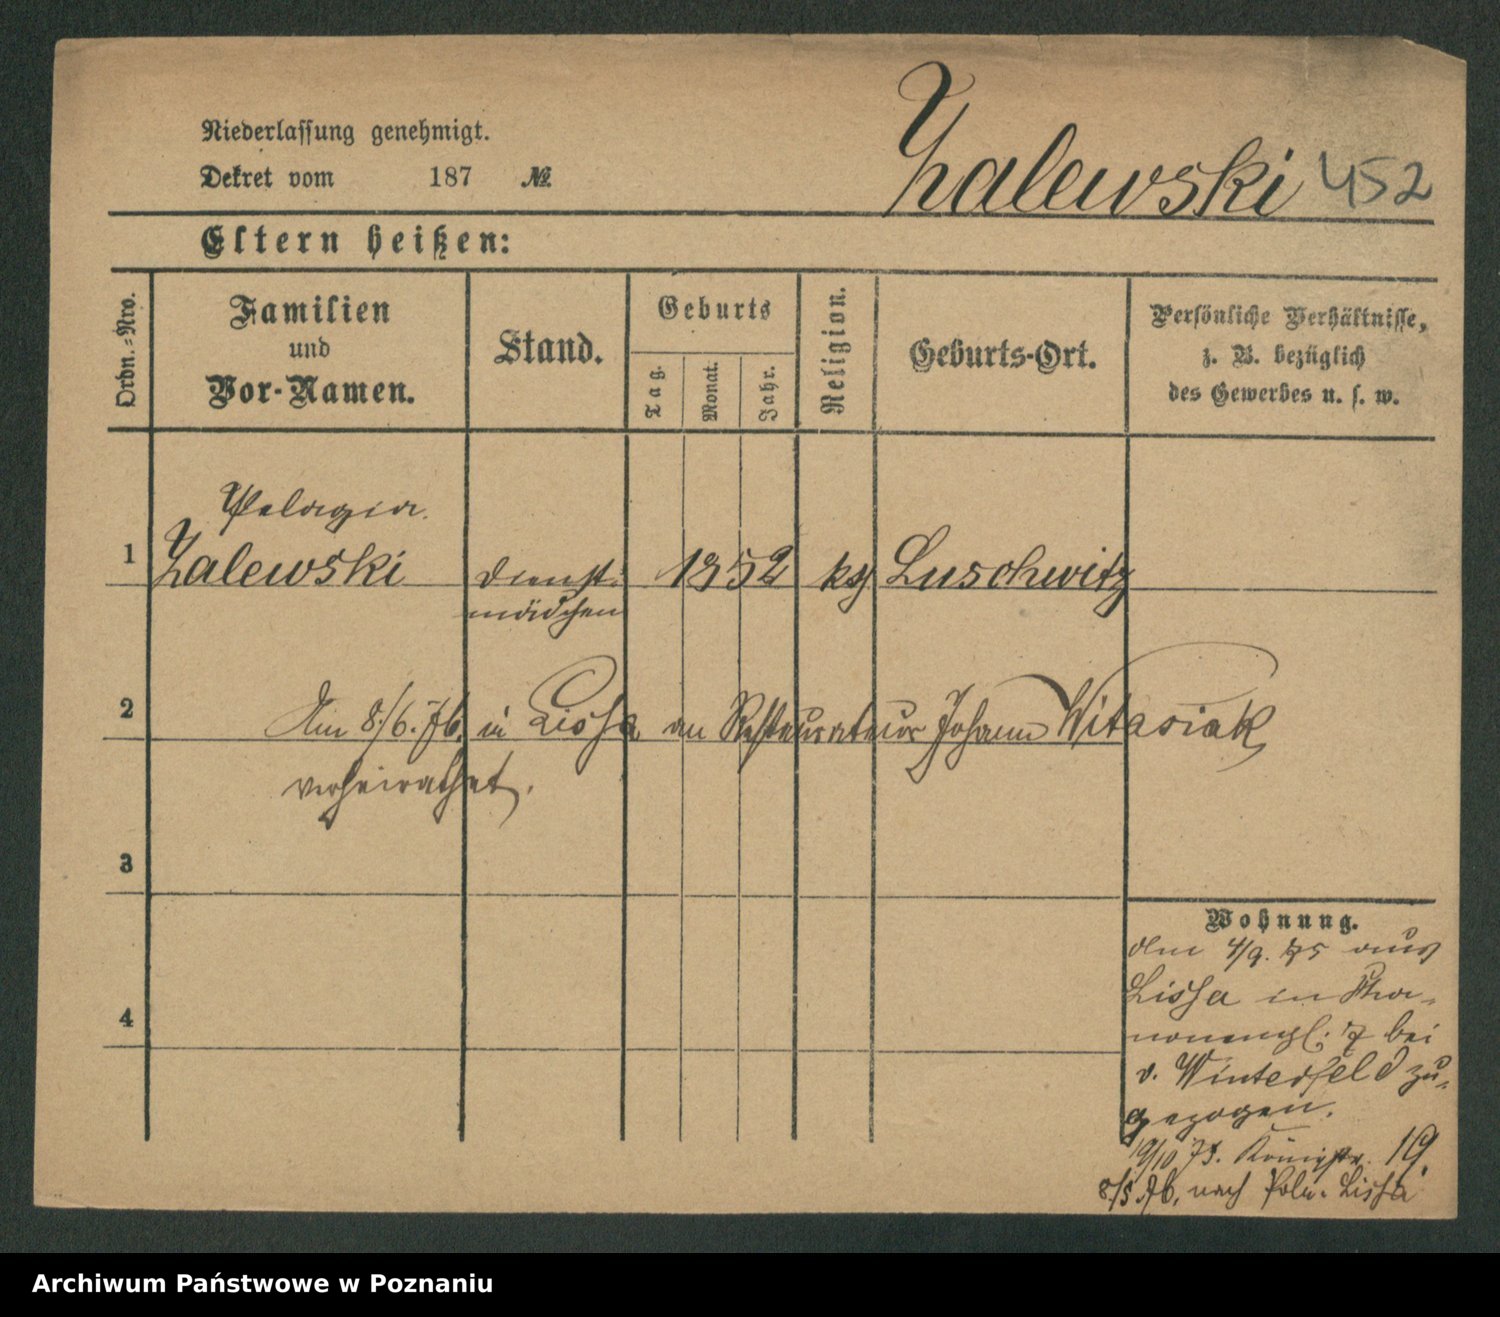 Niederlassung genehmigt.
Dekret vom 187 №
Zalewski 452
Eltern heißen:
Ordn.-Nro.
Familien
und
Vor-Namen.
Stand.
Geburts
Tag.
Monat.
Jahr.
Religion.
Geburts-Ort.
Persönliche Verhältnisse,
z. B. bezüglich
des Gewerbes u. s. w.
Pelagia
1 Zalewski Dienst- 1852 kg Luschwitz
mädchen
2 Am 8/6. 76. in Lissa an Restaurateur Johann Witasiak
verheirathet.
3
Wohnung.
4
den 4/9. 75 aus
Lissa in
7 bei
v. Winterfeld zu-
gezogen.
19/10 75. Königstr. 19.
8/5 76. nach Poln. Lissa
Archiwum Państwowe w Poznaniu